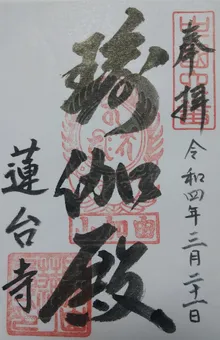 奉拝
令和四年三月二十一日
瑜伽殿
蓮台寺